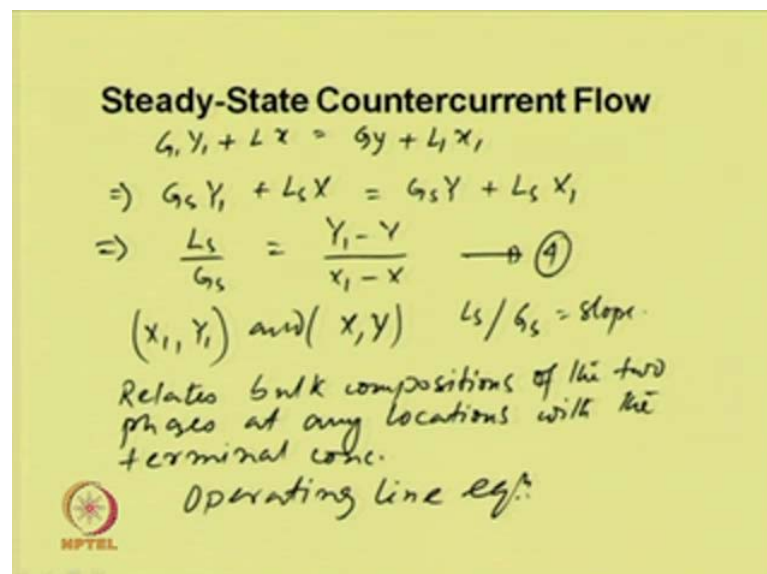 Steady-State Countercurrent Flow
G₁ Y₁ + L x = Gy + L₁ x₁
⇒) Gs Y₁ + Ls X = Gs Y + Ls X₁
⇒) Ls/Gs = (Y₁ - Y)/(X₁ - X) → ④
(X₁, Y₁) and (X, Y) Ls/Gs = slope.
Relates bulk compositions of the two
phases at any locations with the
terminal conc.
Operating line eqⁿ:
NPTEL